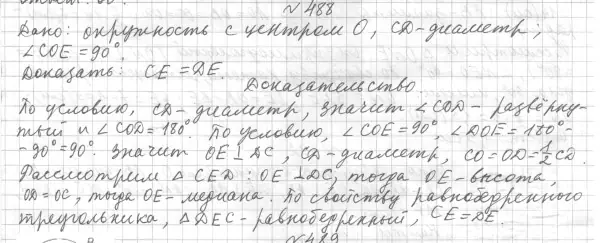 №488
Дано: окружность с центром О, CD-диаметр;
∠COE=90°.
Доказать: CE=DE.
Доказательство.
По условию, CD-диаметр, значит ∠COD-развёрну-
тый и ∠COD=180°. По условию, ∠COE=90°, ∠DOE=180°-
-90°=90°. Значит OE⊥DC, CD-диаметр, CO=OD=1/2CD.
Рассмотрим △CED: OE⊥DC, тогда OE-высота,
OD=OC, тогда OE-медиана. По свойству равнобедренного
треугольника, △DEC-равнобедренный, CE=DE.
№489